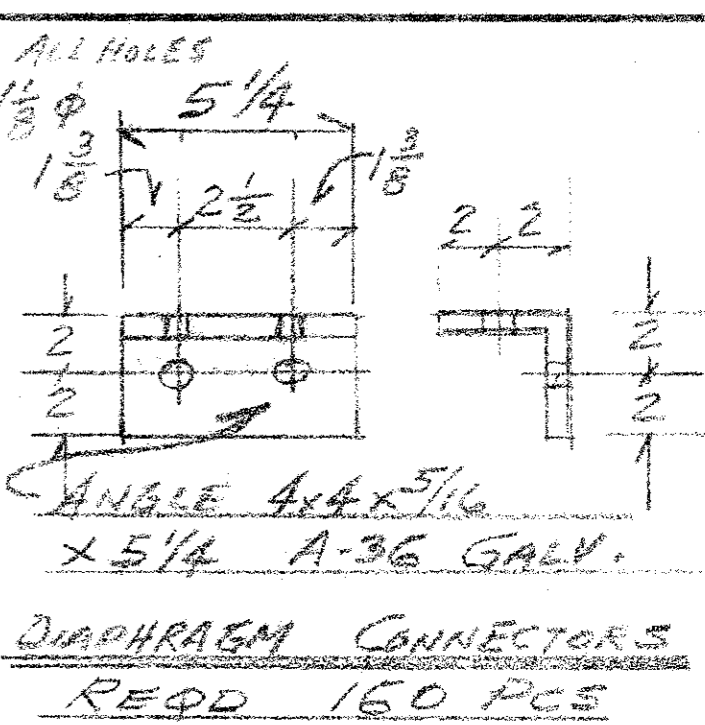 ALL HOLES
1 1/8 φ
5 1/4
1 3/8
2 1/2
1 3/8
2 2
2
2
2
2
ANGLE 4x4x5/16
x 5 1/4 A-36 GALV.
DIAPHRAGM CONNECTORS
REQD 160 PCS